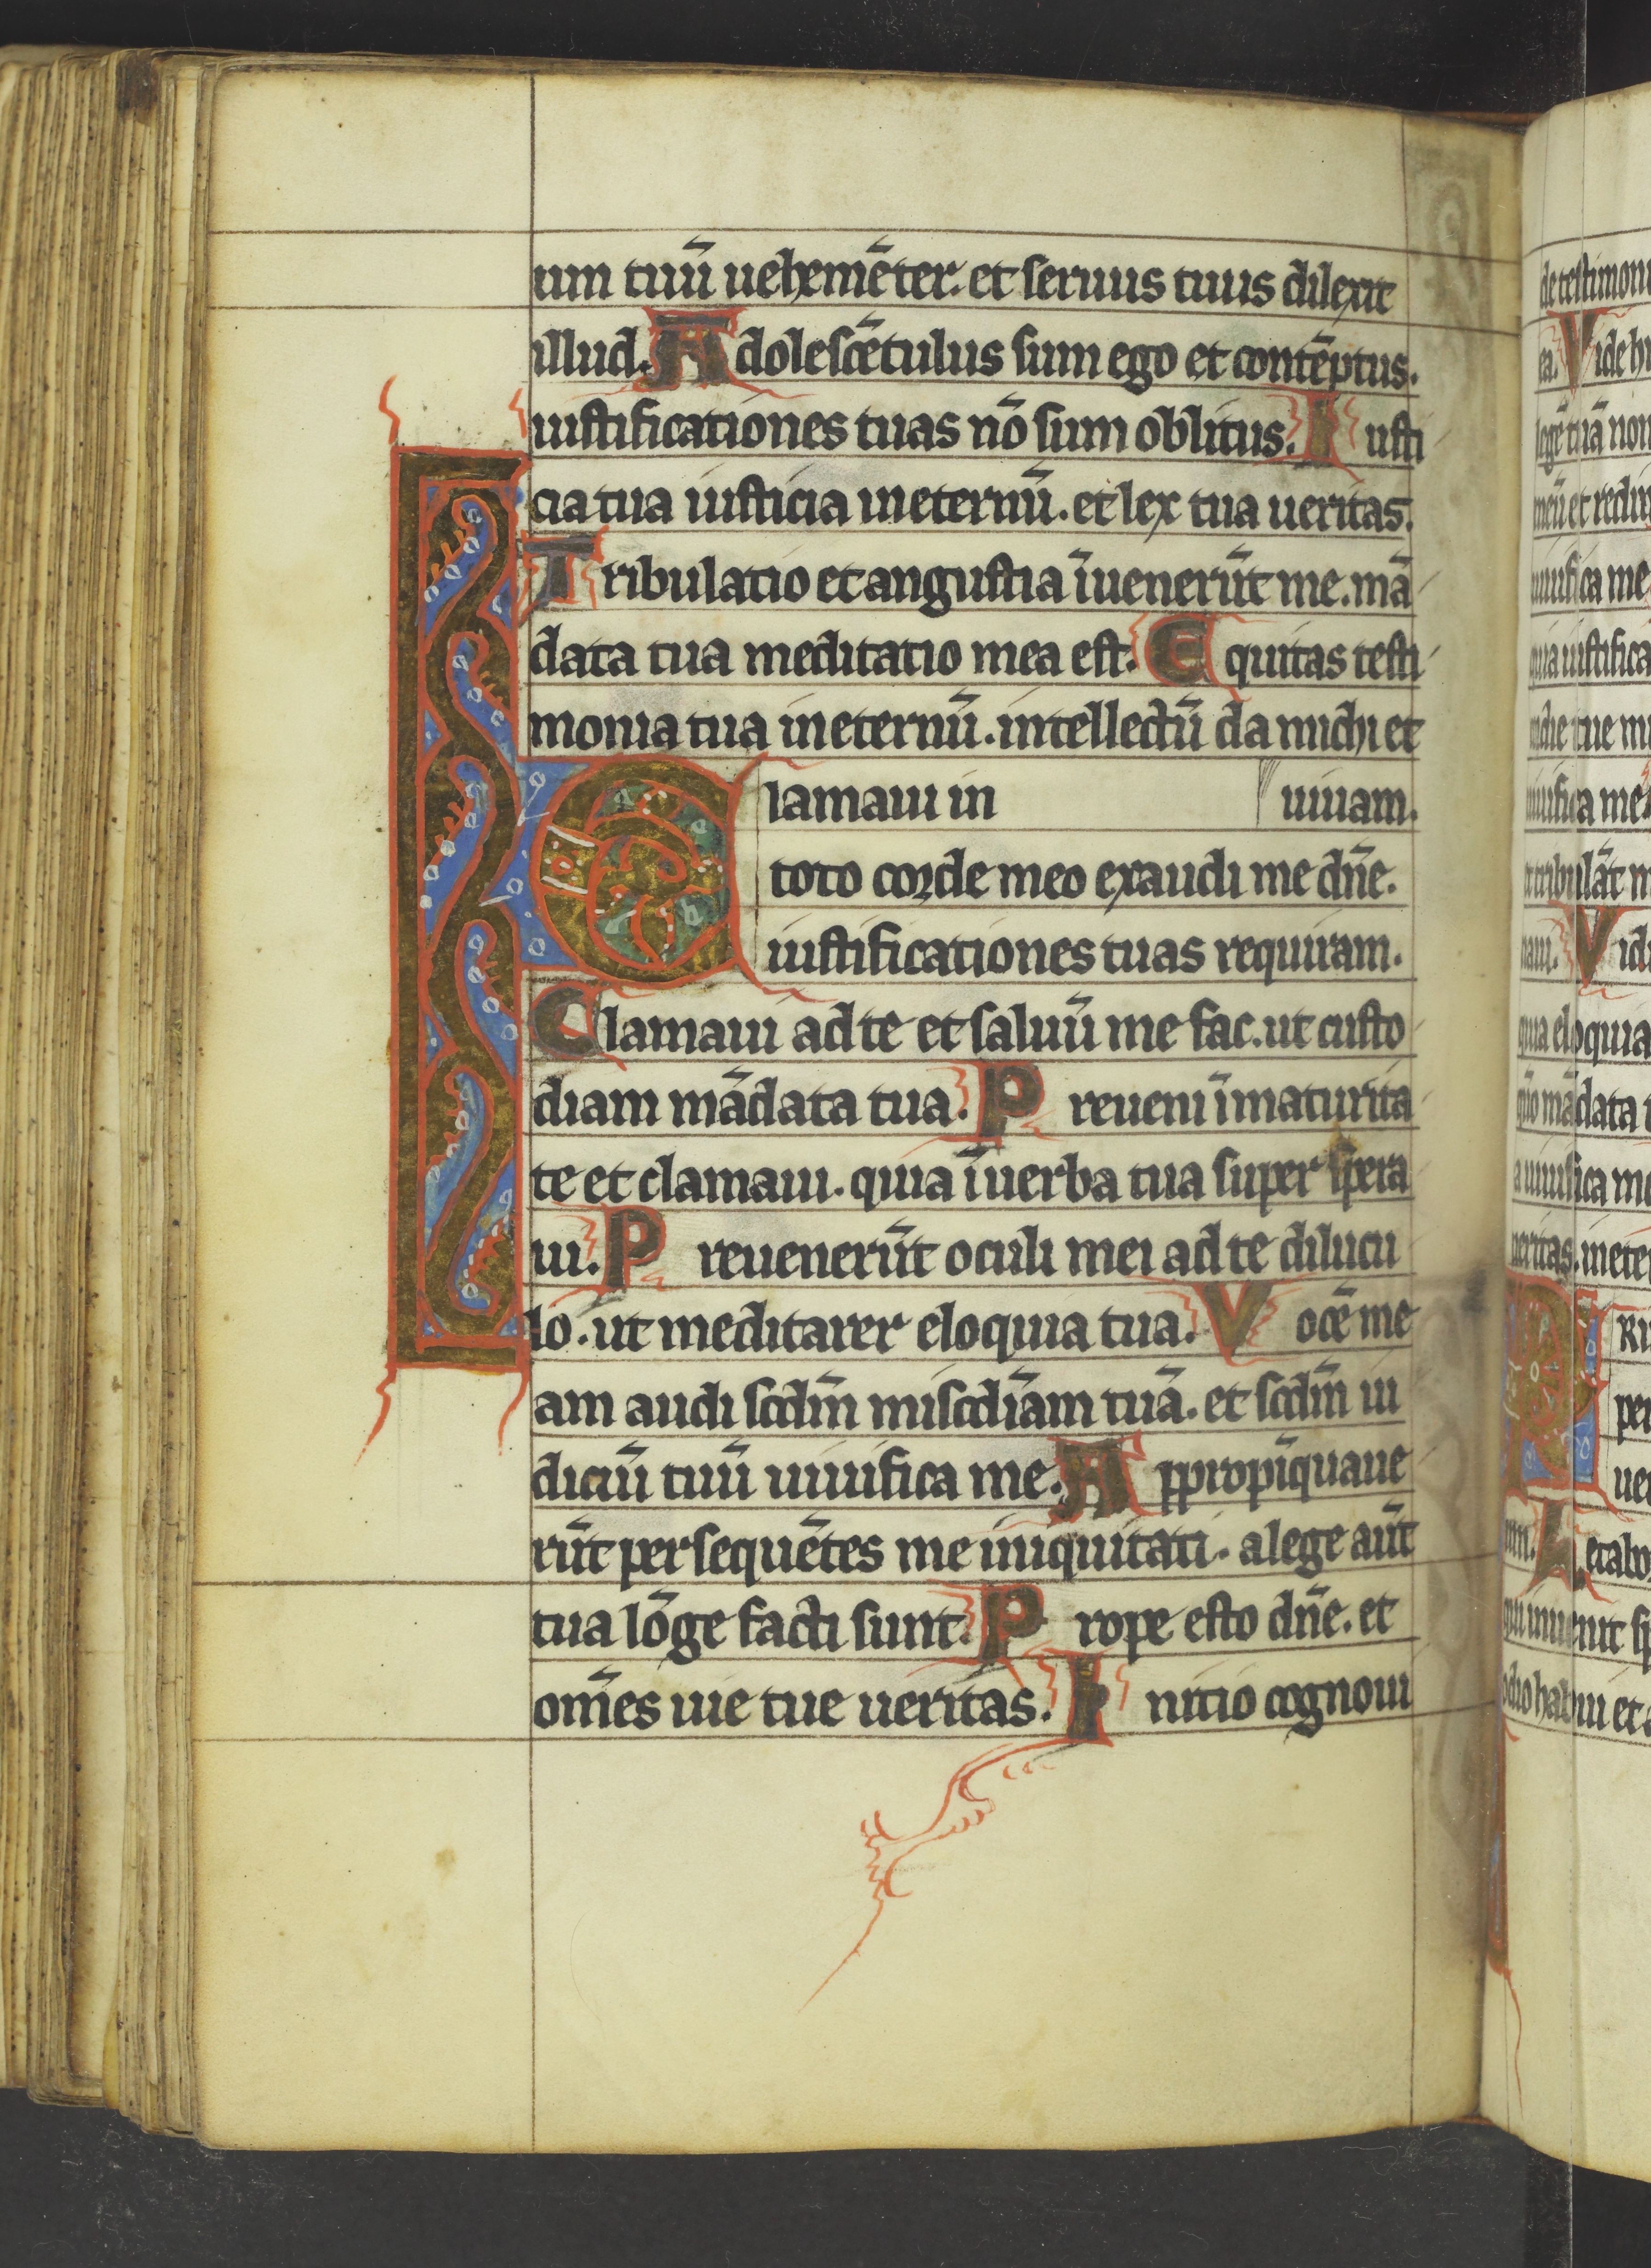 um tuū uehemēter. et seruus tuus dilexit
illud. Adolescētulus sum ego et contēptus.
iustificationes tuas nō sum oblitus. Iusti
cia tua iusticia in eternū. et lex tua ueritas.
Tribulatio et angustia īuenerūt me. mā
data tua meditatio mea est. Equitas testi
monia tua in eternū. intellectū da michi et
uiuam.
Clamaui in
toto corde meo exaudi me dñe.
iustificationes tuas requiram.
Clamaui ad te et saluū me fac. ut custo
diam mādata tua. Preueni ī maturita
te et clamaui. quia ī uerba tua super spera
ui. Preuenerūt oculi mei ad te dilucu
lo. ut meditarer eloquia tua. Vocē me
am audi scdm̄ miscdīam tuā. et scdm̄ iu
diciū tuū uiuifica me. Appropīquaue
rūt persequētes me iniquitati. a lege aūt
tua lōge facti sunt. Prope esto dñe. et
om̄es uie tue ueritas. Initio cognoui
de testimoni
ea. Vide hu
legē tuā non
meū et redim
uiuifica me
quia iustifica
die tue mu
uiuifica me
et tribulāt m
naui. Vidi
quia eloquia
qm̄o mādata t
a uiuifica me
ueritas. in eter
per
odio habui et a